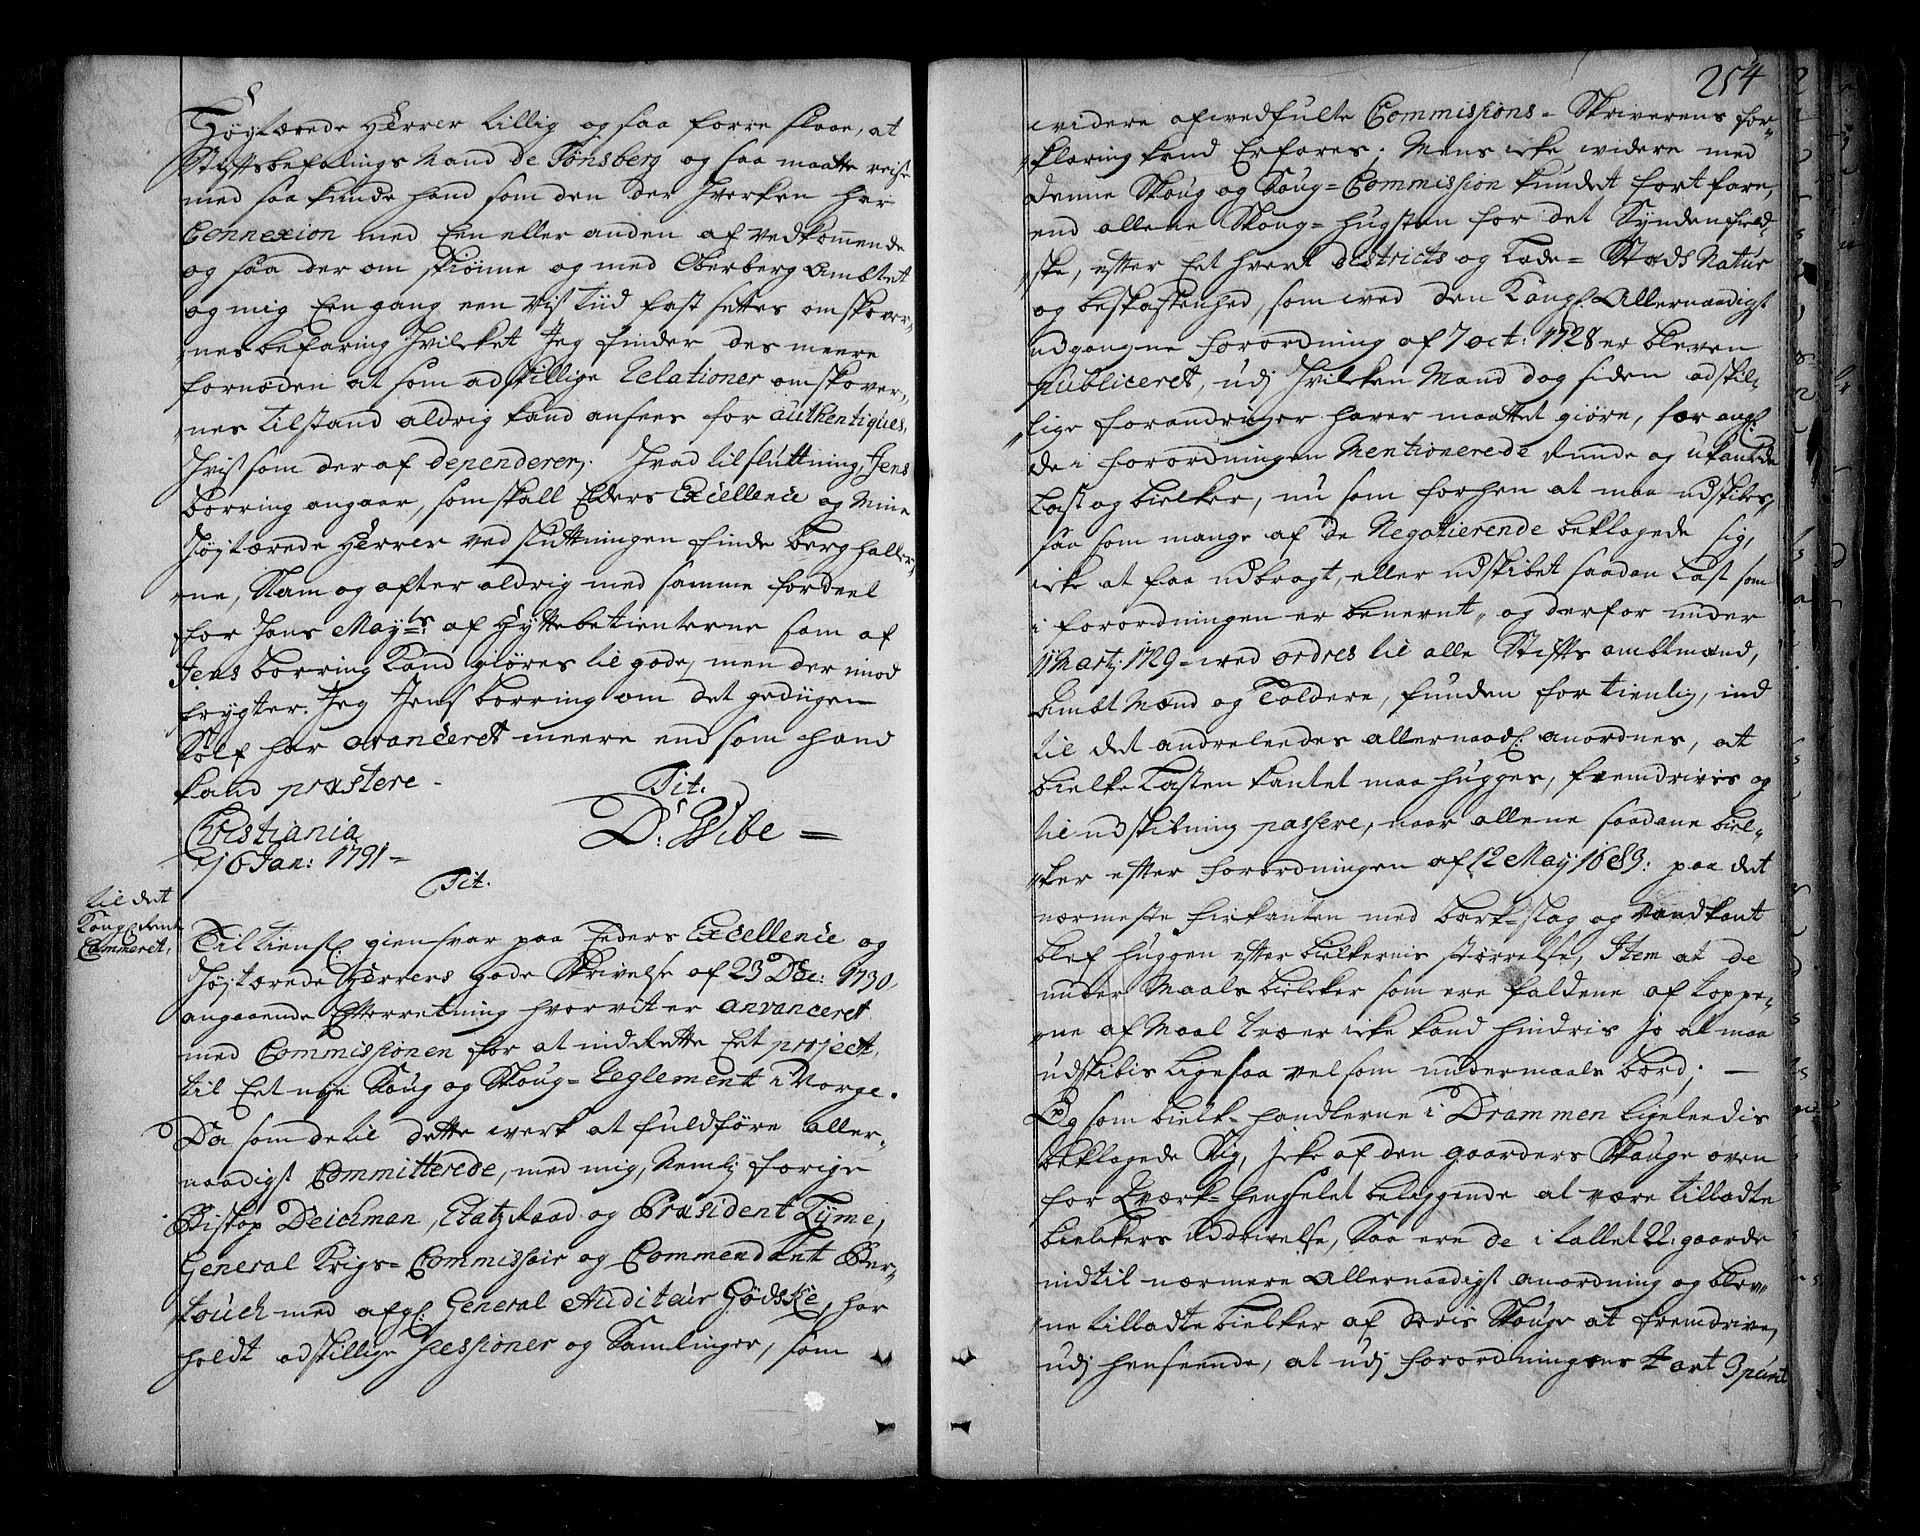 Høytærede Herrer billig og saa forre slaae, at
Stiftsbefalings Mand de Tønsberg og saa maatte reise
med saa kunde hand som den der hverken har
Connexion med Een eller anden af Vedkom̄ende
og saa der om skiønne og med Oberberg Ambtet
og mig Een gang een vis tiid fast settes om skover-
nes befaring hvilcket Jeg finder des meere
fornøden at som adskillige Relationer om skover-
nes tilstand aldrig kand ansees for authentiques,
hvis som der af dependerer. Hvad tilsluttning, Jens
Borring angaar, som skall Eders Excellence og Mine
Høytærede Herrer ved sluttningen finde berghaller-
ne, Slam og after aldrig med samme fordeel
for Hans May:ts af Hyttebetienterne som af
Jens Borring kand giøres til gode, men der imod
frygter Jeg Jens Borring om det gedügen
Sølf har avanceret meere end som hand
kand præstere -
Tit.
D: Wibe =
Christiania
16 Jan: 1731 =
Tit.
til det
Kongl: Rente
Cammeret,
Til tienstl: giensvar paa Eders Excellence og
Høytærede Herrers gode Skrivelse af 23 Dec: 1730,
angaaende Efterretning hvorvit er anvanceret
med Commissionen for at indrette Eet project
til Eet nye Saug og Skoug-Reglement i Norge.
Da som de til dette werk at fuldføre aller-
naadigst Committerede, med mig, Nemlig forige
Biskop Deichman, Etatz Raad og Præsident Tyme,
General Krigs-Commissair og Commendant Ber-
touch med afg: General Auditeur Gødske, har
holdt adskillige Sessioner og Samlinger, som
254
widere af wedfulte Commissions-Skriverens for-
klaring kand Erfares; Mens icke widere med
denne Skoug og Saug-Commission kundet fortfare,
end allene Skoug-hugsten for det Syndenfield-
ske, efter Eet hvert districts og Lade-Stæds Natur
og beskaffenhed, som wed den Kongl: Allernaadigst
udgangne Forordning af 7 oct: 1728 er bleven
publiceret, udj hvilcken Mand dog siden adskil-
lige forandringer haver maattet giøre, for angl:
de i forordningen Mentionerede runde og ukantede
Last og bielker, nu som forhen at maa udskibes,
saa som mange af de Negotierende beklagede sig,
icke at faa udbragt, eller udskibet saadan Last som
i forordningen er benernt, og derfor under
11 Martz: 1729 wed ordres til alle Stifts ambtmænd,
Ambt Mænd og Toldere, funden for tienlig, ind
til det andreleedes allernaadl: anordnes, at
bielke Lasten kantet maa hugges, fremdrives og
til udskibning passere, naar allene saadane biel-
ker efter forordningen af 12 May: 1683: paa det
nærmeste firkanten med bark-slag og vandkant
blef huggen efter bielkernis størrelse, Item at de
under Maals bielcker som ere faldene af toppe-
ne af Maal træer icke kand hindris jo at maa
udskibis ligesaa vel som undermaals bord; -
Og som bielk-handlerne i Drammen ligeleedis
beklagede sig, icke af den gaarders Skouge oven
for Qværk-hengselet beliggende at være tilladte
bielckers uddrivelse, saa ere de i tallet 22: gaarde
indtil nærmere Allernaadigst anordning og blev-
ne tilladte bielker af deris Skouge at fremdrive,
udj henseende, at udj forordningens t art 3 punt